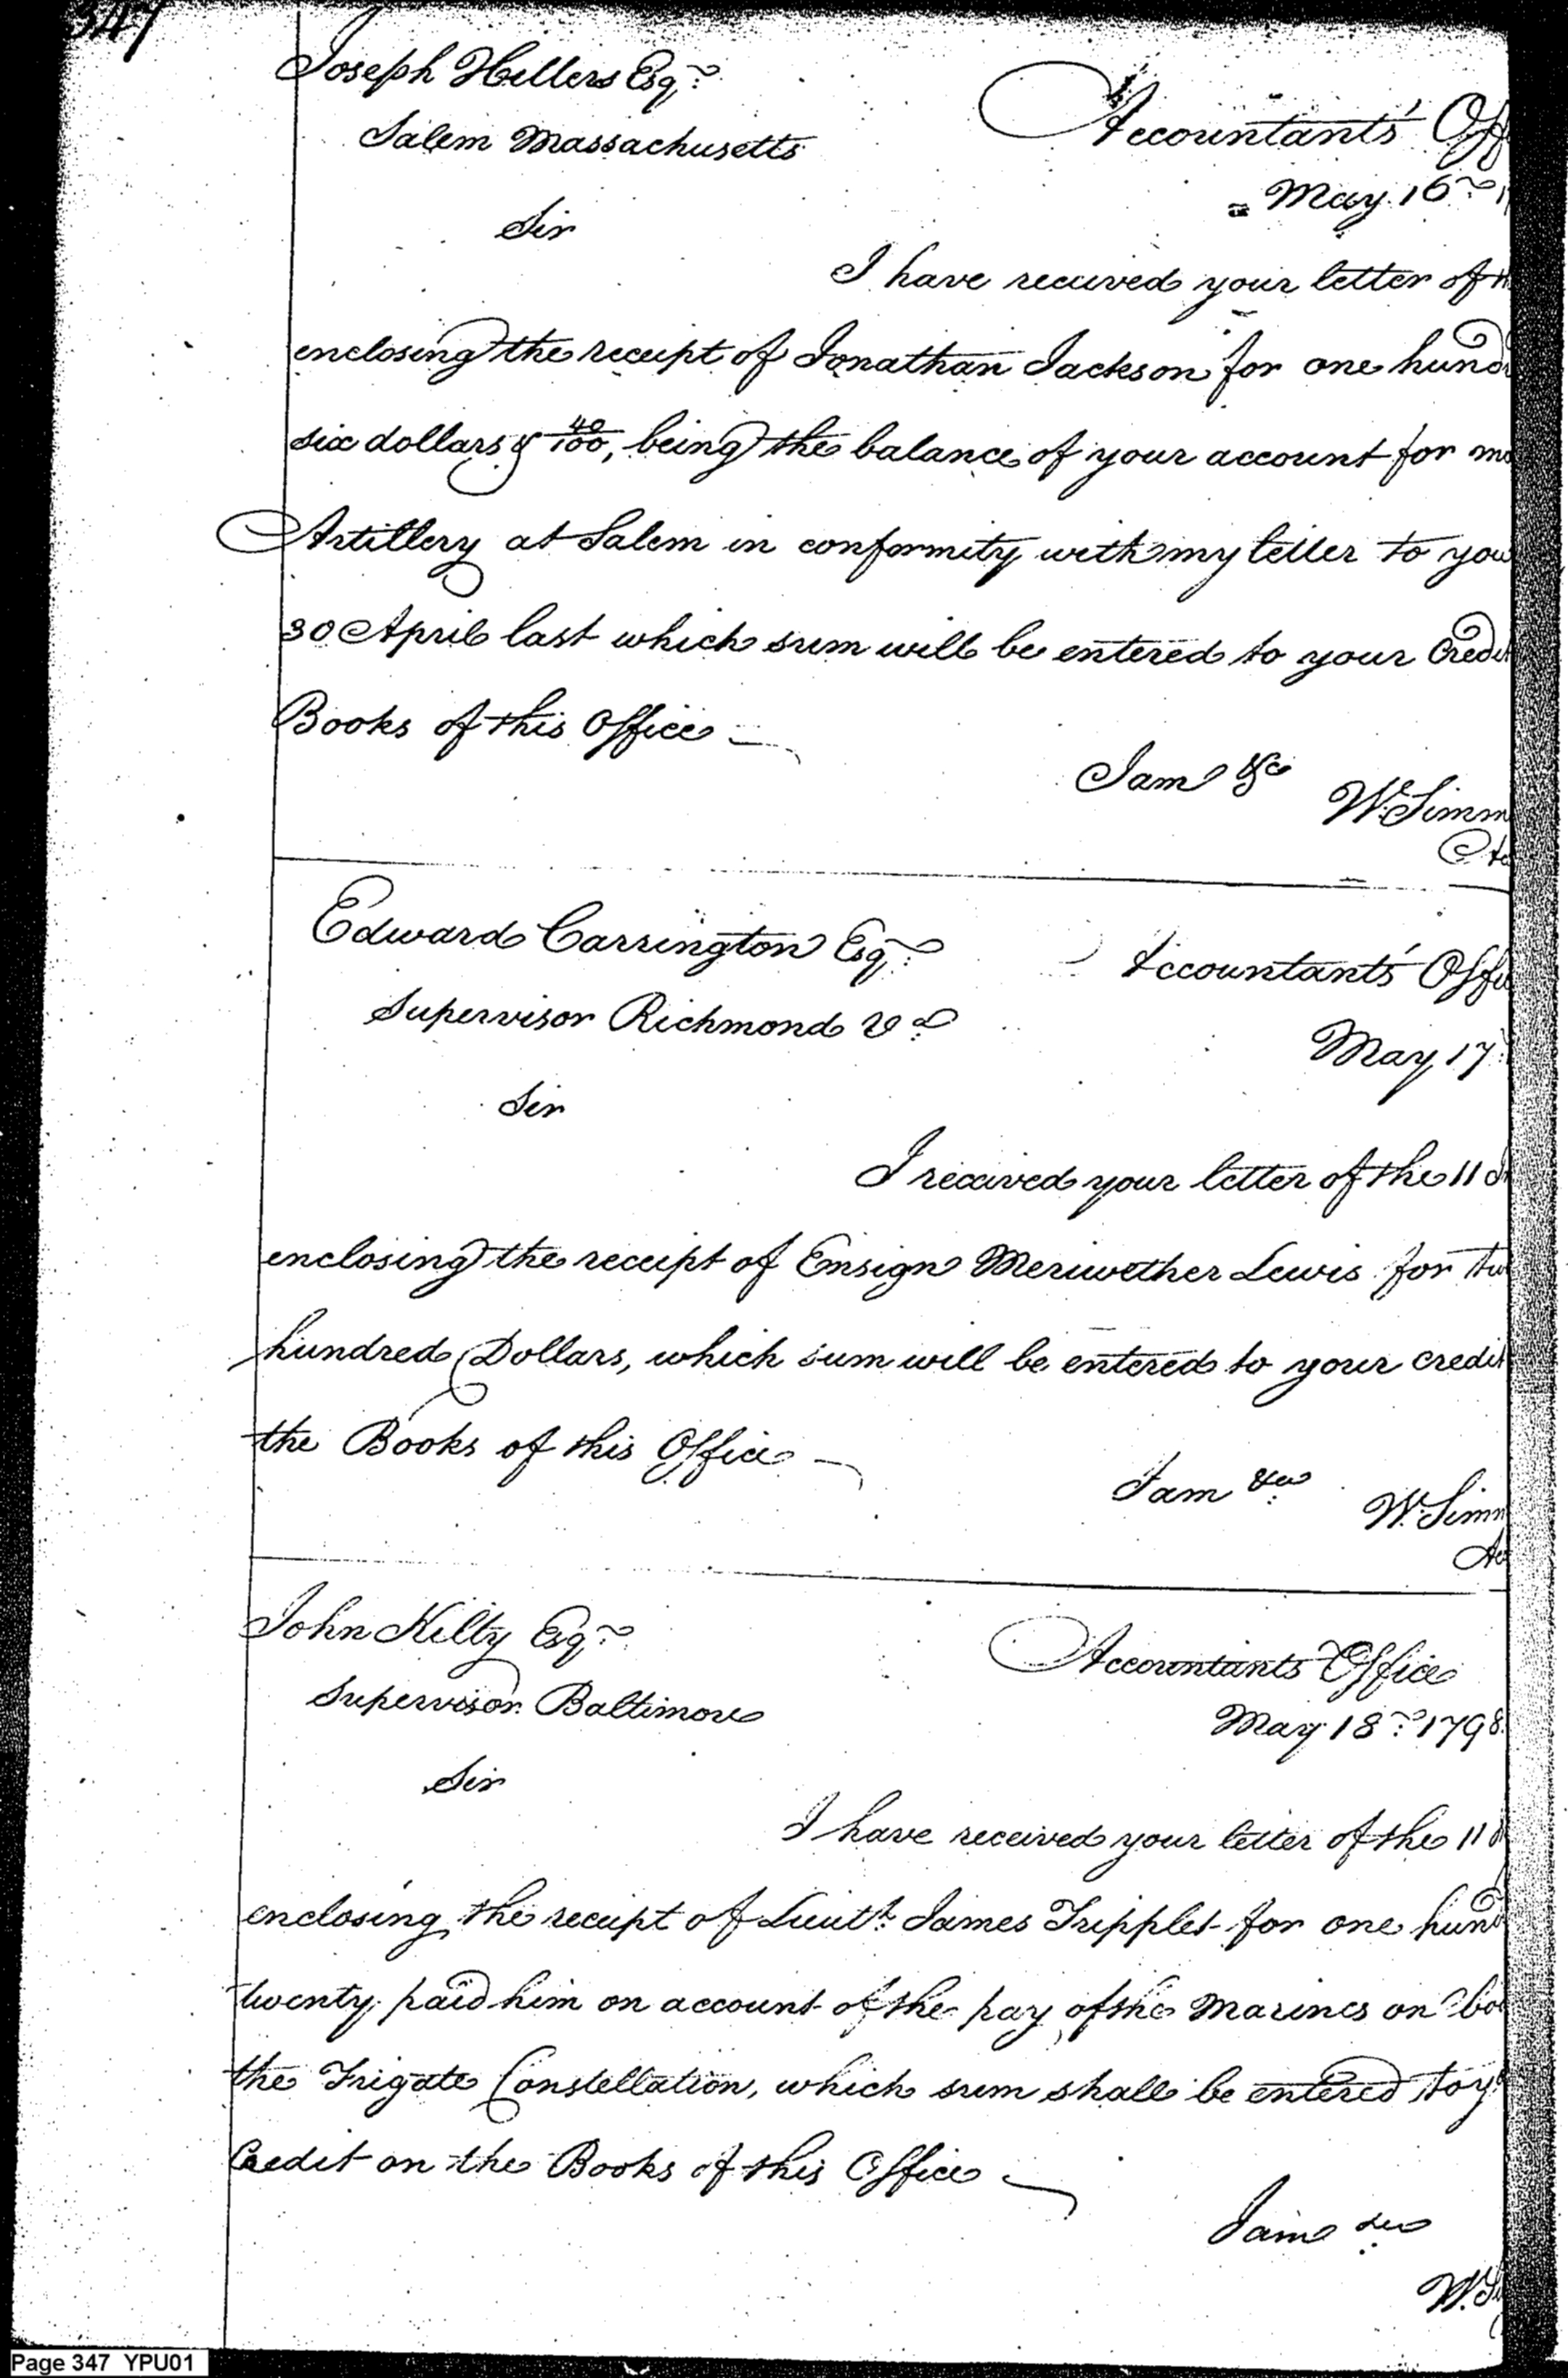 347
Joseph Hillers Esqr.
Salem Massachusetts
Accountants' Off
May 16
Sir
I have received your letter of
enclosing the receipt of Jonathan Jackson for one hund
six dollars & 40/100, being the balance of your account for
Artillery at Salem in conformity with my letter to you
30 April last which sum will be entered to your Credit
Books of this Office
I am &c
W. Simm
Edward Carrington Esqr.
Supervisor Richmond Va.
Accountants' Offi
May 17
Sir
I received your letter of the 11
enclosing the receipt of Ensign Meriwether Lewis for
hundred Dollars, which sum will be entered to your credit
the Books of this Office
I am &c
W. Simm
John Kilty Esqr.
Supervisor Baltimore
Accountants Office
May 18 1798
Sir
I have received your letter of the 11
enclosing the receipt of Lieutt. James Tripplet for one hund
twenty paid him on account of the pay of the Marines on bo
the Frigate Constellation, which sum shall be entered to y
Credit on the Books of this Office
I am &c
W. Si
Page 347 YPU01